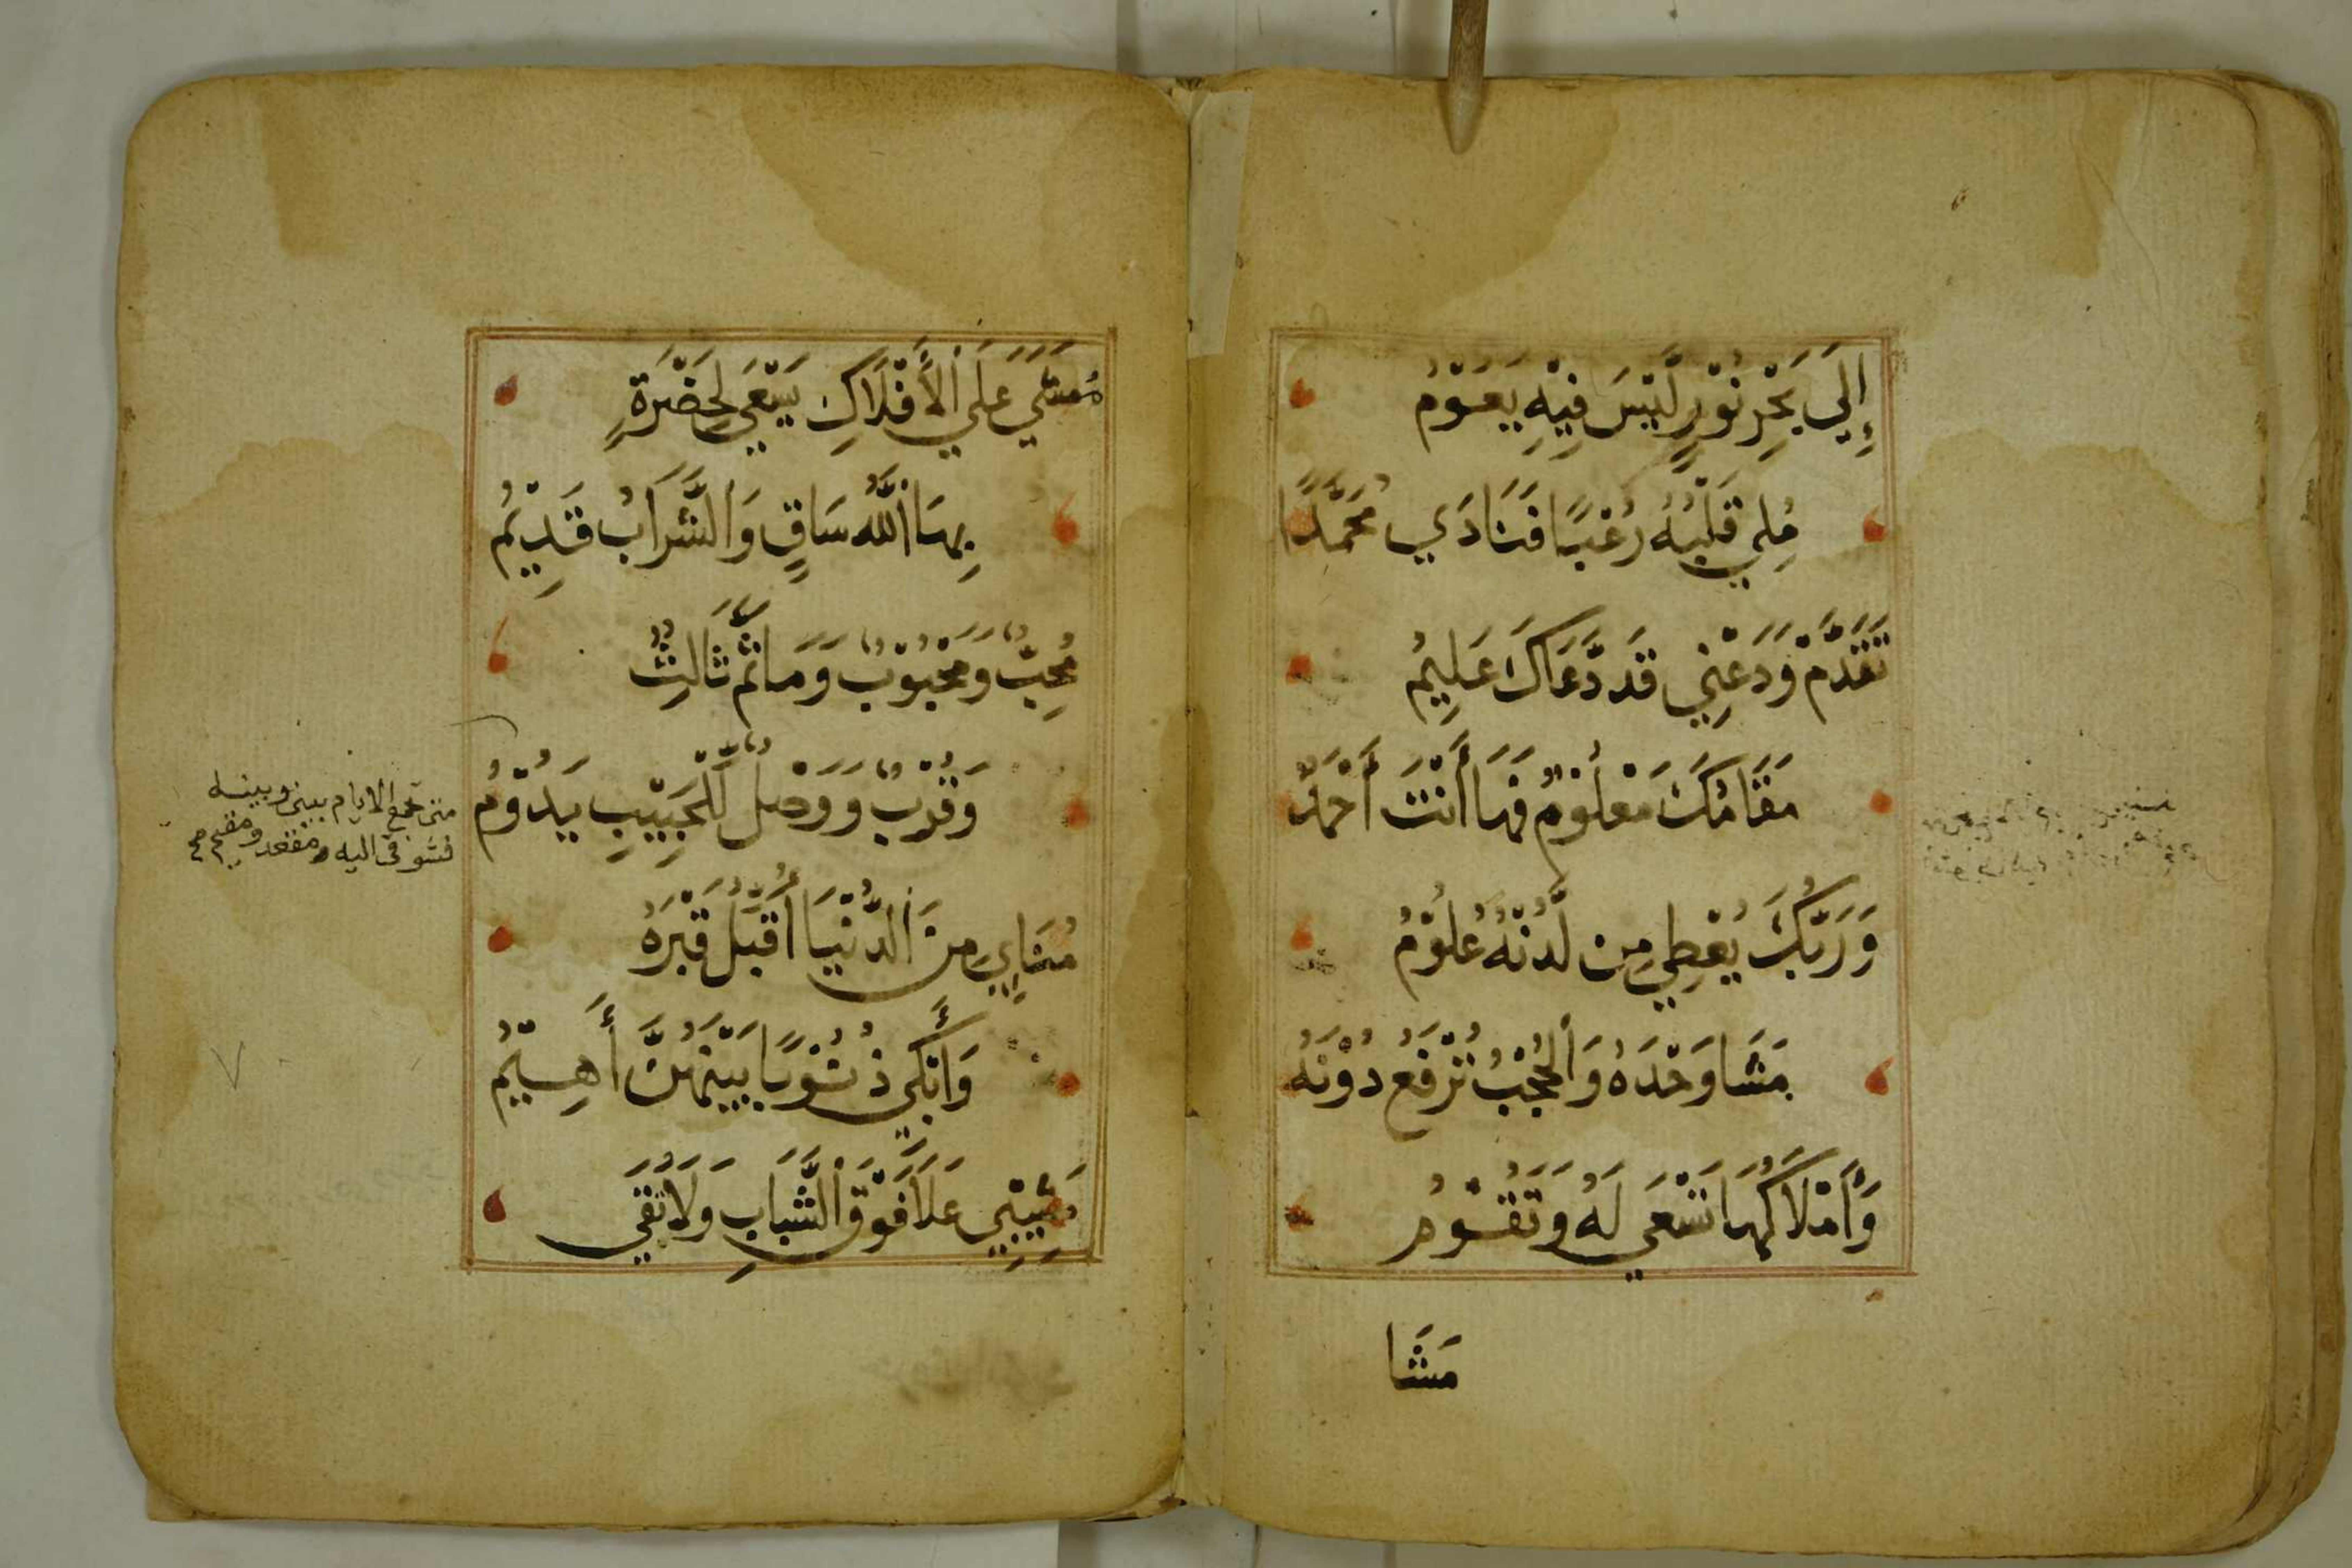 إِلَى بَحْرِ نُوْرٍ لَّيْسَ فِيْهِ يَعُوْمُ
مُلِي قَلْبُهُ رُعْبًا فَنَادَي مُحَمَّدًا
تَقَدَّمْ وَدَعْنِي قَد دَّعَاكَ عَلِيْمُ
مَقَامُكَ مَعْلُوْمٌ فَهَا أَنْتَ أَحْمَدٌ
وَرَبُّكَ يُعْطِي مِن لَّدُنْهُ عُلُوْمُ
مَشَا وَحْدَهُ وَالْحُجْبُ تُرْفَعُ دُوْنَهُ
وَأَمْلَاكُهَا تَسْعَى لَهُ وَتَقُوْمُ
مَشَا
مَشَي عَلَي الْأَفْلَاكِ يَسْعَي لِحَضْرَةٍ
بِهَا اللَّهُ سَاقٍ وَالشَّرَابُ قَدِيْمُ
مُحِبٌّ وَمَحْبُوْبٌ وَمَا ثَمَّ ثَالِثٌ
وَقُرْبٌ وَوَصْلٌ لِّلْحَبِيْبِ يَدُوْمُ
مُنَايِ مِنَ الدُّنْيَا أُقَبِّلُ قَبْرَهُ
وَأَبْكِي ذُنُوْبًا بَيْنَهُنَّ أَهِيْمُ
مَشِيْبِي عَلَا فَوْقَ الشَّبَابِ وَلَا تُقًي
متى تجمع الايام بيني وبينه
فشوقي اليه مقعد ومقيم صح